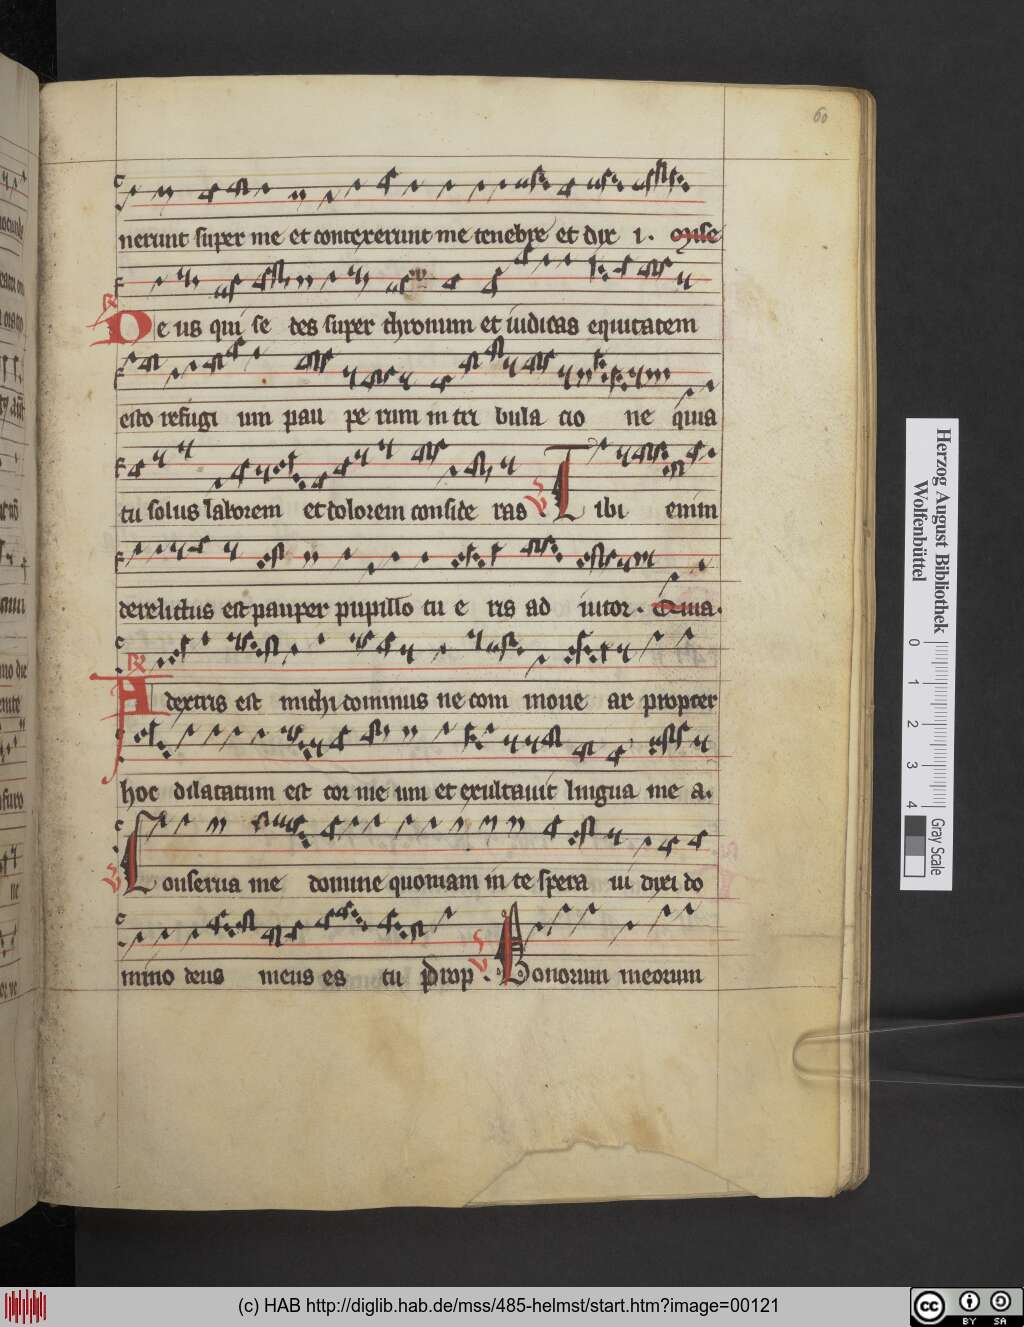 60
nerunt super me et contexerunt me tenebre et dix i. Mise
R Deus qui se des super thronum et iudicas equitatem
esto refugi um pau pe rum in tri bula cio ne quia
tu solus laborem et dolorem conside ras. V Tibi enim
derelictus est pauper pupillo tu e ris ad iutor. Quia.
R A dextris est michi dominus ne com moue ar propter
hoc dilatatum est cor me um et exultauit lingua me a.
V Conserua me domine quoniam in te spera ui dixi do
mino deus meus es tu Prop. V Bonorum meorum
Herzog August Bibliothek
Wolfenbüttel
0 1 2 3 4
Gray Scale
(c) HAB http://diglib.hab.de/mss/485-helmst/start.htm?image=00121
cc BY SA